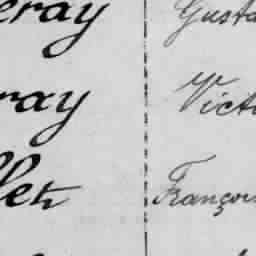 eray Gusta
ray Victo
llet Françoi